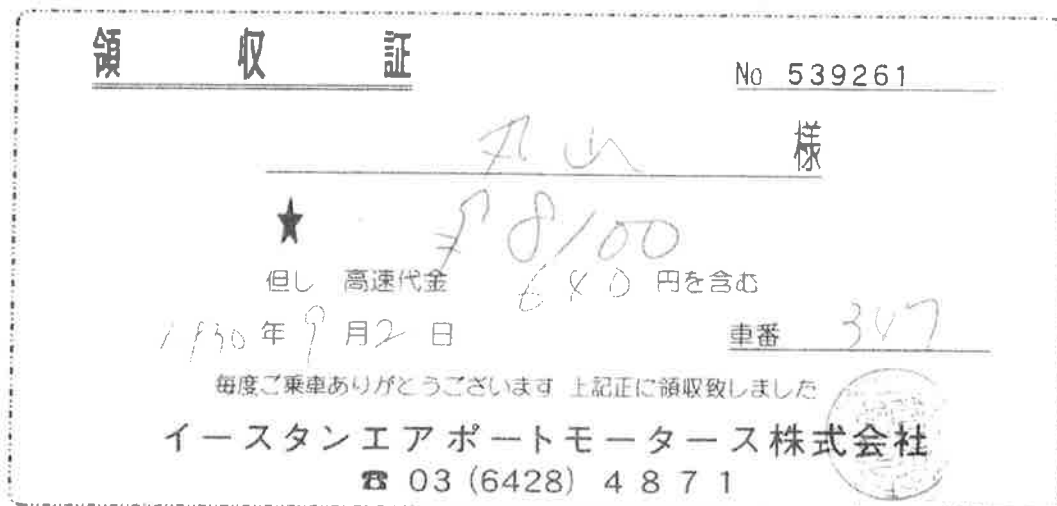 領収証
No 539261
丸山 様
★ ¥8100
但し 高速代金 640 円を含む
年 9月2日
車番 347
毎度ご乗車ありがとうございます 上記正に領収致しました
イースタンエアポートモータース株式会社
☎ 03 (6428) 4871